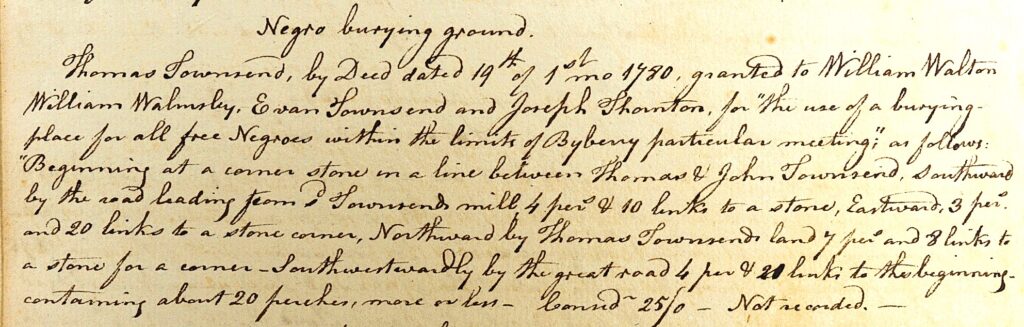 Negro burying ground.
Thomas Townsend, by Deed dated 19th of 1st mo 1780, granted to William Walton
William Walmsby, Evan Townsend and Joseph Thornton, for "the use of a burying-
place for all free Negroes within the limits of Byberry particular meeting;" as follows:
"Beginning at a corner stone in a line between Thomas & John Townsend, Southward
by the road leading from sd Townsends mill 4 pers & 10 links to a stone, Eastward, 3 pers.
and 20 links to a stone corner, Northward by Thomas Townsends land 7 pers and 8 links to
a stone for a corner - Southwestwardly by the great road 4 per & 21 links to the beginning-
containing about 20 perches, more or less - Considn 25/0 - Not recorded. -